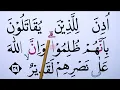 أُذِنَ لِلَّذِينَ يُقَاتَلُونَ
بِأَنَّهُمْ ظُلِمُوا وَإِنَّ اللّٰهَ
عَلٰى نَصْرِهِمْ لَقَدِيرٌ